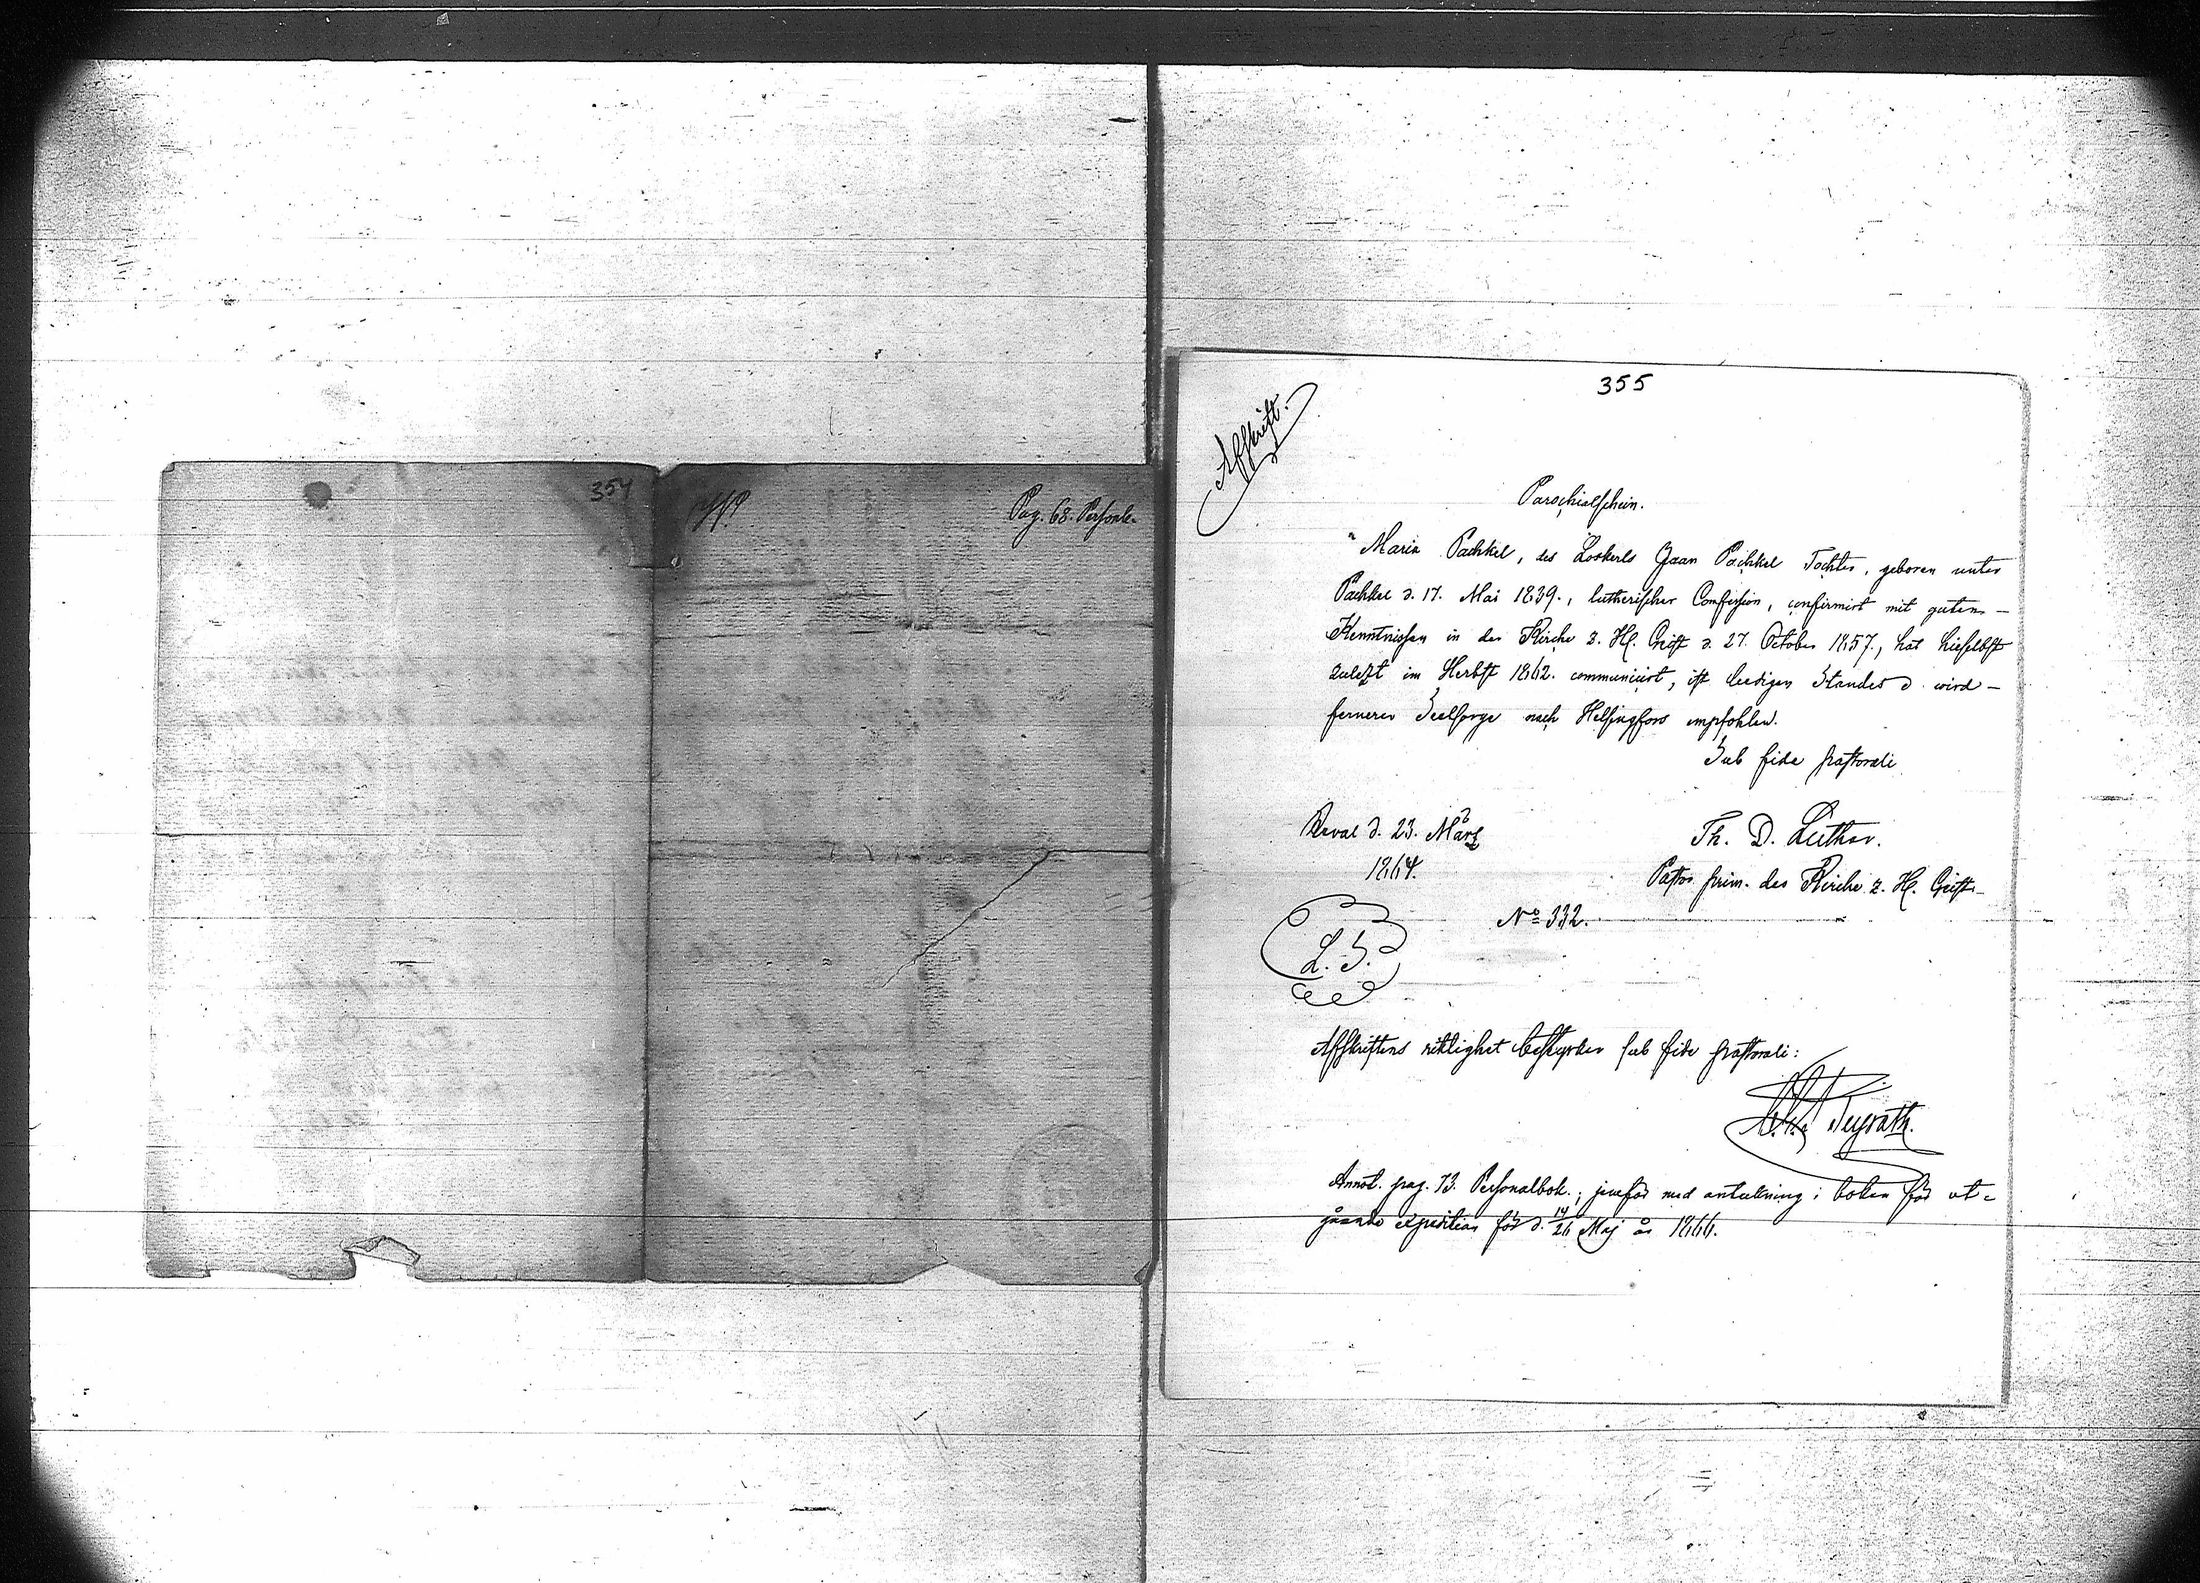 354
Pag. 68. Personb.
355
Afskrift.
Parochialschein.
"Maria Pachkel, des Loskerls Jaan Pachkel Tochter, geboren unter
Pachkel d. 17. Mai 1839., lutherischer Confession, confirmirt mit guten
Kenntnissen in der Kirche z. Hl. Geist d. 27. October 1857., hat hieselbst
zuletzt im Herbst 1862. communicirt, ist ledigen Standes & wird
fernerer Seelsorge nach Helsingfors empfohlen.
Sub fide pastorali
Reval d. 23. März
1864.
Th. D. Luther.
Pastor prim. der Kirche z. H. Geist
No 332.
L. S.
Afskriftens riktighet bestyrker sub fide pastorali:
Tegrath.
Annot. pag. 73. Personalbok.; jemför med anteckning i boken för ut-
gående expedition för d. 14/26 Maj år 1866.